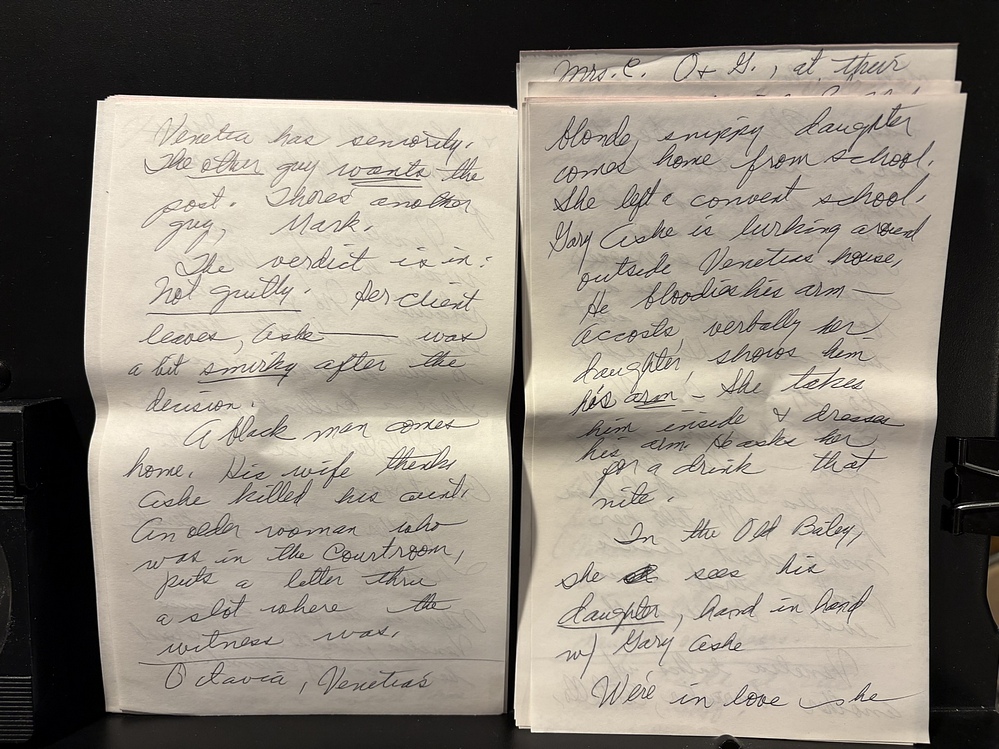 Venetia has seniority.
The other guy wants the
post. Theres another
guy, Mark.
The verdict is in:
Not guilty. Her client
leaves, Ashe — was
a bit smirky after the
decision.
A black man comes
home. His wife thinks
Ashe killed his aunt.
An older woman who
was in the Courtroom,
puts a letter thru
a slot where the
witness was.
Octavia, Venetia's
Mrs. C. O + G., at their
blonde, snippy daughter
comes home from school.
She left a convent school.
Gary Ashe is lurking around
outside Venetias house,
He bloodies his arm —
accosts verbally her
daughter, shows him
his arm - She takes
him inside & dresses
his arm. He asks her
for a drink that
nite.
In the Old Baley,
she sees his
daughter, hand in hand
w/ Gary Ashe
We're in love she